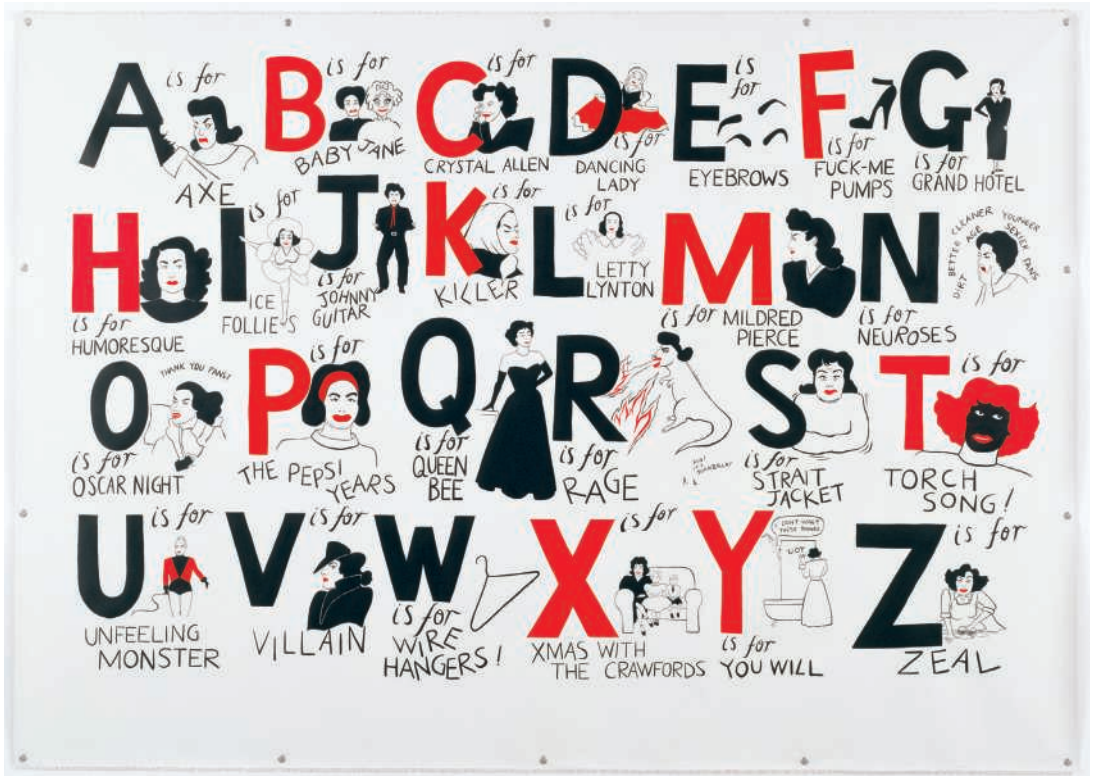 A is for
AXE
B is for
BABY JANE
C is for
CRYSTAL ALLEN
D
is for
DANCING
LADY
E is
for
EYEBROWS
F
is for
FUCK-ME
PUMPS
G
is for
GRAND HOTEL
H
is for
HUMORESQUE
I is for
ICE
FOLLIES
J
is for
JOHNNY
GUITAR
K is for
KILLER
L is for
LETTY
LYNTON
M
is for MILDRED
PIERCE
N
is for
NEUROSES
DIRT BETTER CLEANER
AGE
YOUNGER
SEXIER
FANS
O
THANK YOU FANS!
is for
OSCAR NIGHT
P is for
THE PEPSI
YEARS
Q
is for
QUEEN
BEE
R
is for
RAGE
S
is for
STRAIT
JACKET
T is for
TORCH
SONG!
U is for
UNFEELING
MONSTER
V is for
VILLAIN
W
is for
WIRE
HANGERS!
X is for
XMAS WITH
THE CRAWFORDS
Y
is for
YOU WILL
Z is for
ZEAL